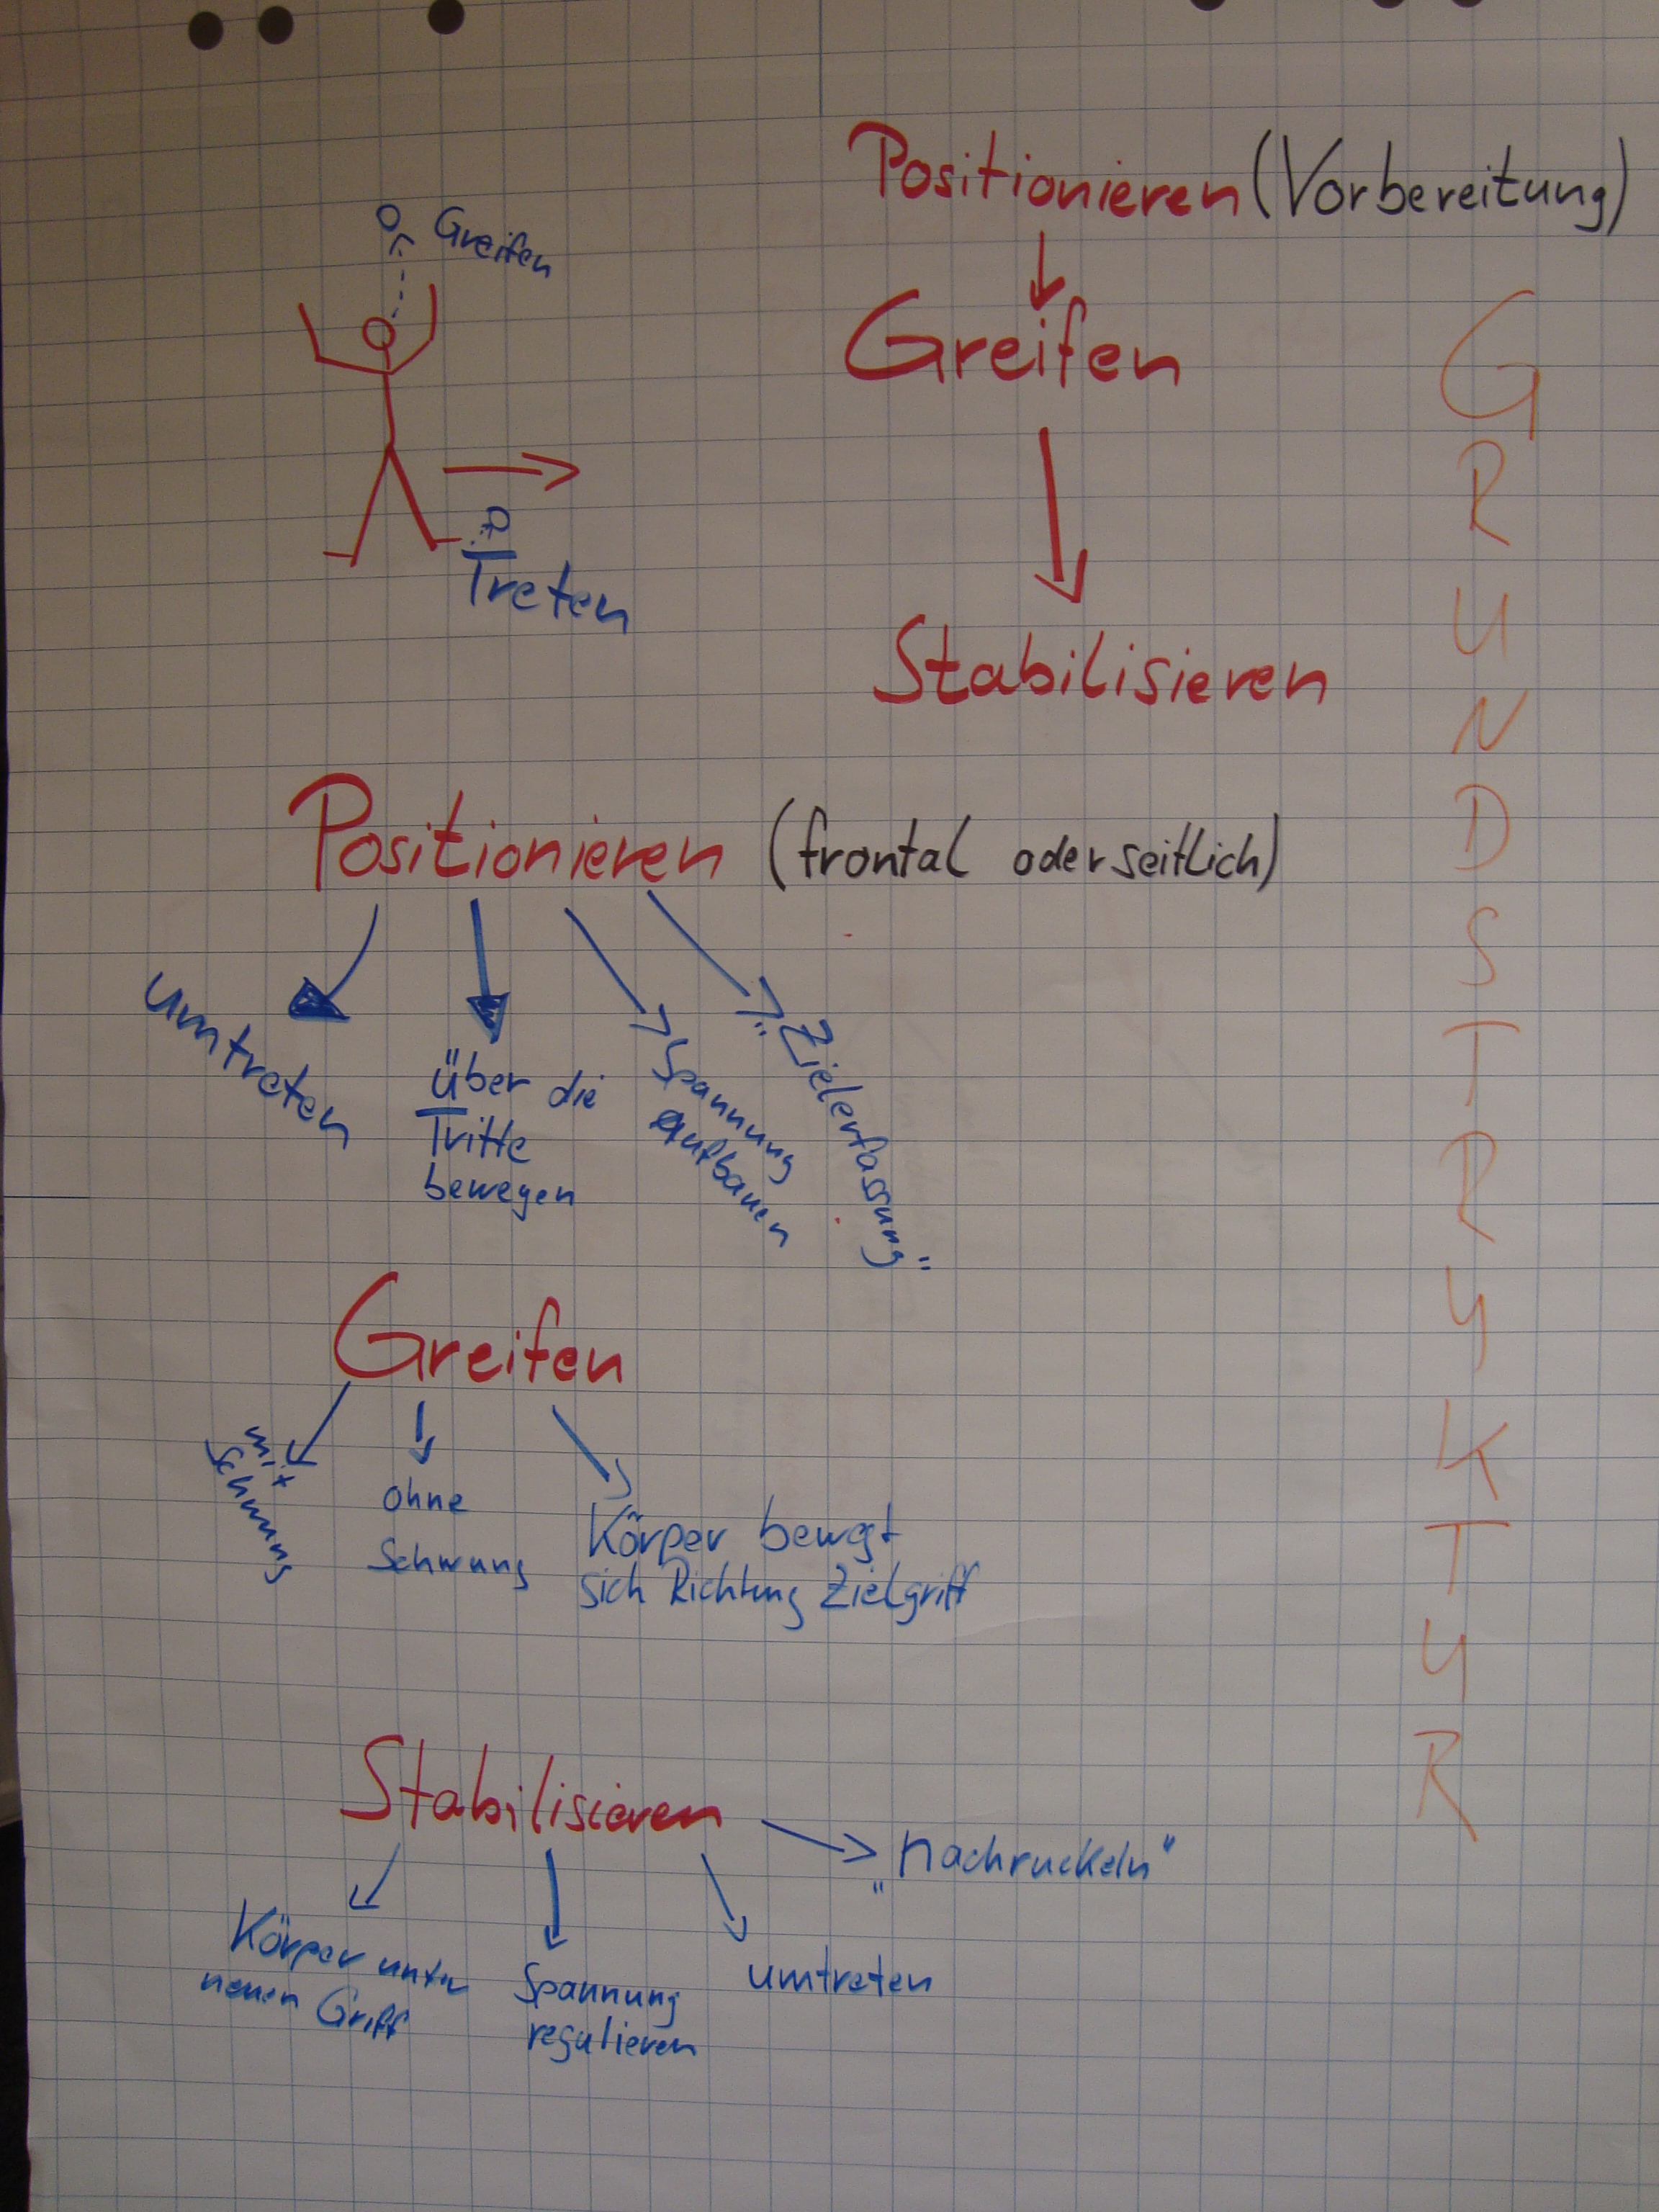 Positionieren (Vorbereitung)
Greifen
Greifen
Treten
Stabilisieren
GRUNDSTRUKTUR
Positionieren (frontal oder seitlich)
umtreten
über die
Tritte
bewegen
Spannung
aufbauen
„Zielerfassung"
Greifen
mit
Schwung
ohne
Schwung
Körper bewegt
sich Richtung Zielgriff
Stabilisieren
„nachruckeln"
Körper unter
neuen Griff
Spannung
regulieren
umtreten